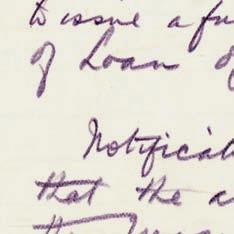 to issue a fu
of Loan of
Notificati
that the a
the